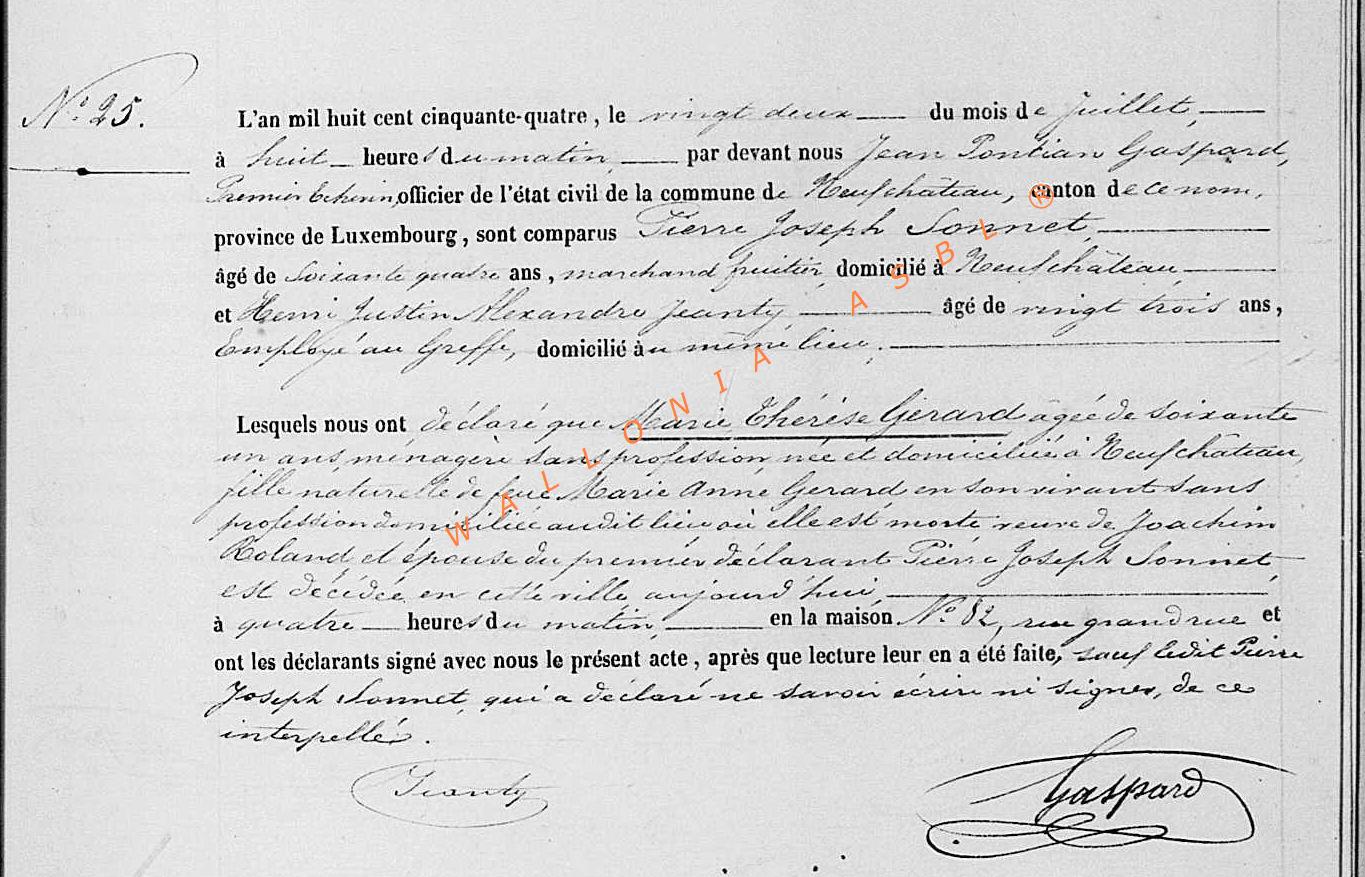 N.° 25.
L'an mil huit cent cinquante-quatre, le vingt deux du mois de Juillet,
à huit heures du matin, par devant nous Jean Pontian Gaspard,
Premier Echevin, officier de l'état civil de la commune de Neufchâteau, canton de ce nom,
province de Luxembourg, sont comparus Pierre Joseph Sonnet,
âgé de Soixante quatre ans, marchand fruitier, domicilié à Neufchâteau
et Henri Justin Alexandre Jeanty âgé de vingt trois ans,
Employé au Greffe, domicilié au même lieu,
Lesquels nous ont déclaré que Marie Thérèse Gérard âgée de soixante
un ans, ménagère sans profession, née et domiciliée à Neufchâteau,
fille naturelle de feue Marie Anne Gerard en son vivant sans
profession domiciliée audit lieu où elle est morte, veuve de Joachim
Roland, et épouse du premier déclarant Pierre Joseph Sonnet,
est décédée en cette ville aujourd'hui,
à quatre heures du matin, en la maison N.° 82, rue grand rue et
ont les déclarants signé avec nous le présent acte, après que lecture leur en a été faite, sauf ledit Pierre
Joseph Sonnet, qui a déclaré ne savoir écrire ni signer, de ce
interpellé.
Jeanty
Gaspard
WALLONIA ASBL ®